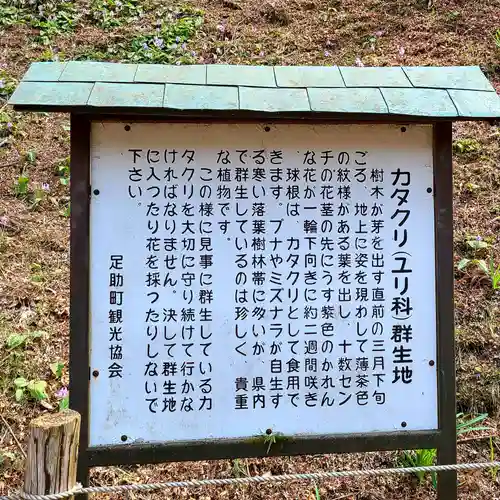 カタクリ（ユリ科）群生地
樹木が芽を出す直前の三月下旬
ごろ、地上に姿を現わして薄茶色
の紋様がある葉を出し、十数セン
チの花茎の先にうす紫色のかれん
な花が一輪下向きに約二週間咲き
、球根は、カタクリとして食用で
きます。ブナやミズナラが自生す
る寒い落葉樹林帯に多いが、県内
で群生しているのは珍しく 貴重
な植物です。
この様に見事に群生している力
タクリを大切に守り続けて行かな
ければなりません。決して群生地
に入つたり花を採つたりしないで
下さい。
足助町観光協会